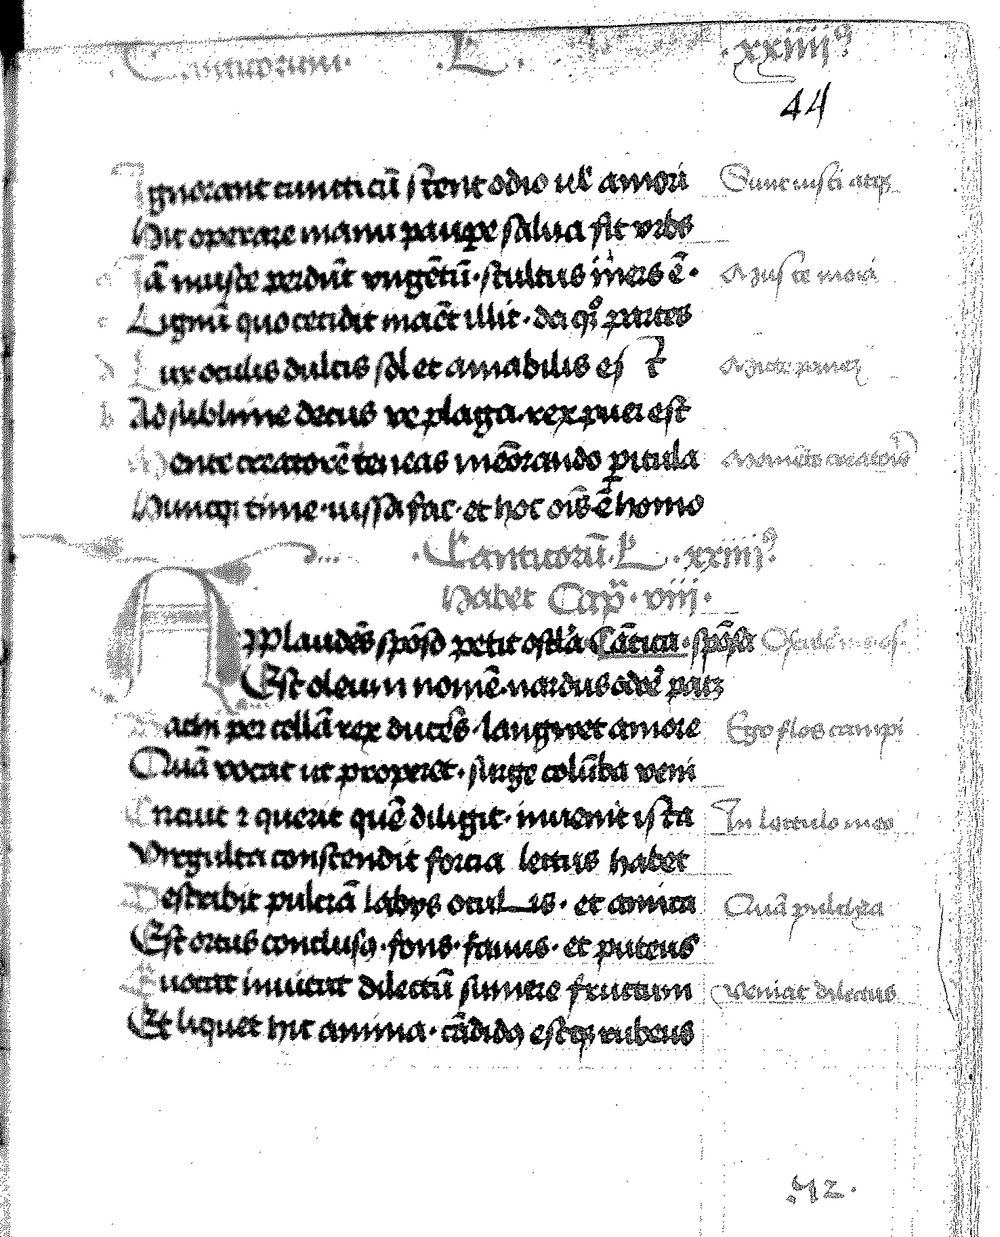 Canticorum. L. .xxiiij9
44
Ignorant cuncti cū stent odio ul' amori Sunt iusti atq3
Hic operare manu paupe salua fit vrbs
Iā musce perdūt vngētū. stultus iners ē. Muste mori
Lignū quo cecidit
Lux oculis dulcis sol et amabilis est
Ad sublime decus ve plaga. rex puer est
Mente creatorē teneas mēorando pitula Memēto creatoris
Hunc time. iussa fac. et hoc ois ē homo
Canticorū. L. .xxiiij9
Habet Cap. viij.
APplaudēs spōso petit oscl'a Cātica. spōsa Oscul
Est oleum nomē. nardus odor
per cellā rex ducēs. languet amore Ego flos campi
Quā vocat ut properet. surge colūba veni
querit quē diligit. inuenit ista In lectulo meo
Virgulta conscendit forcia lectus habet
Describit pulcrā labys oculis. et amica Quā pulchra
Est ortus conclusꝯ. fons. fauus. et puteus
Euocat inuitat dilectū sumere fructum Veniat dilectus
Et liquet hic anima. cādidꝯ estq3 rubeus
42.